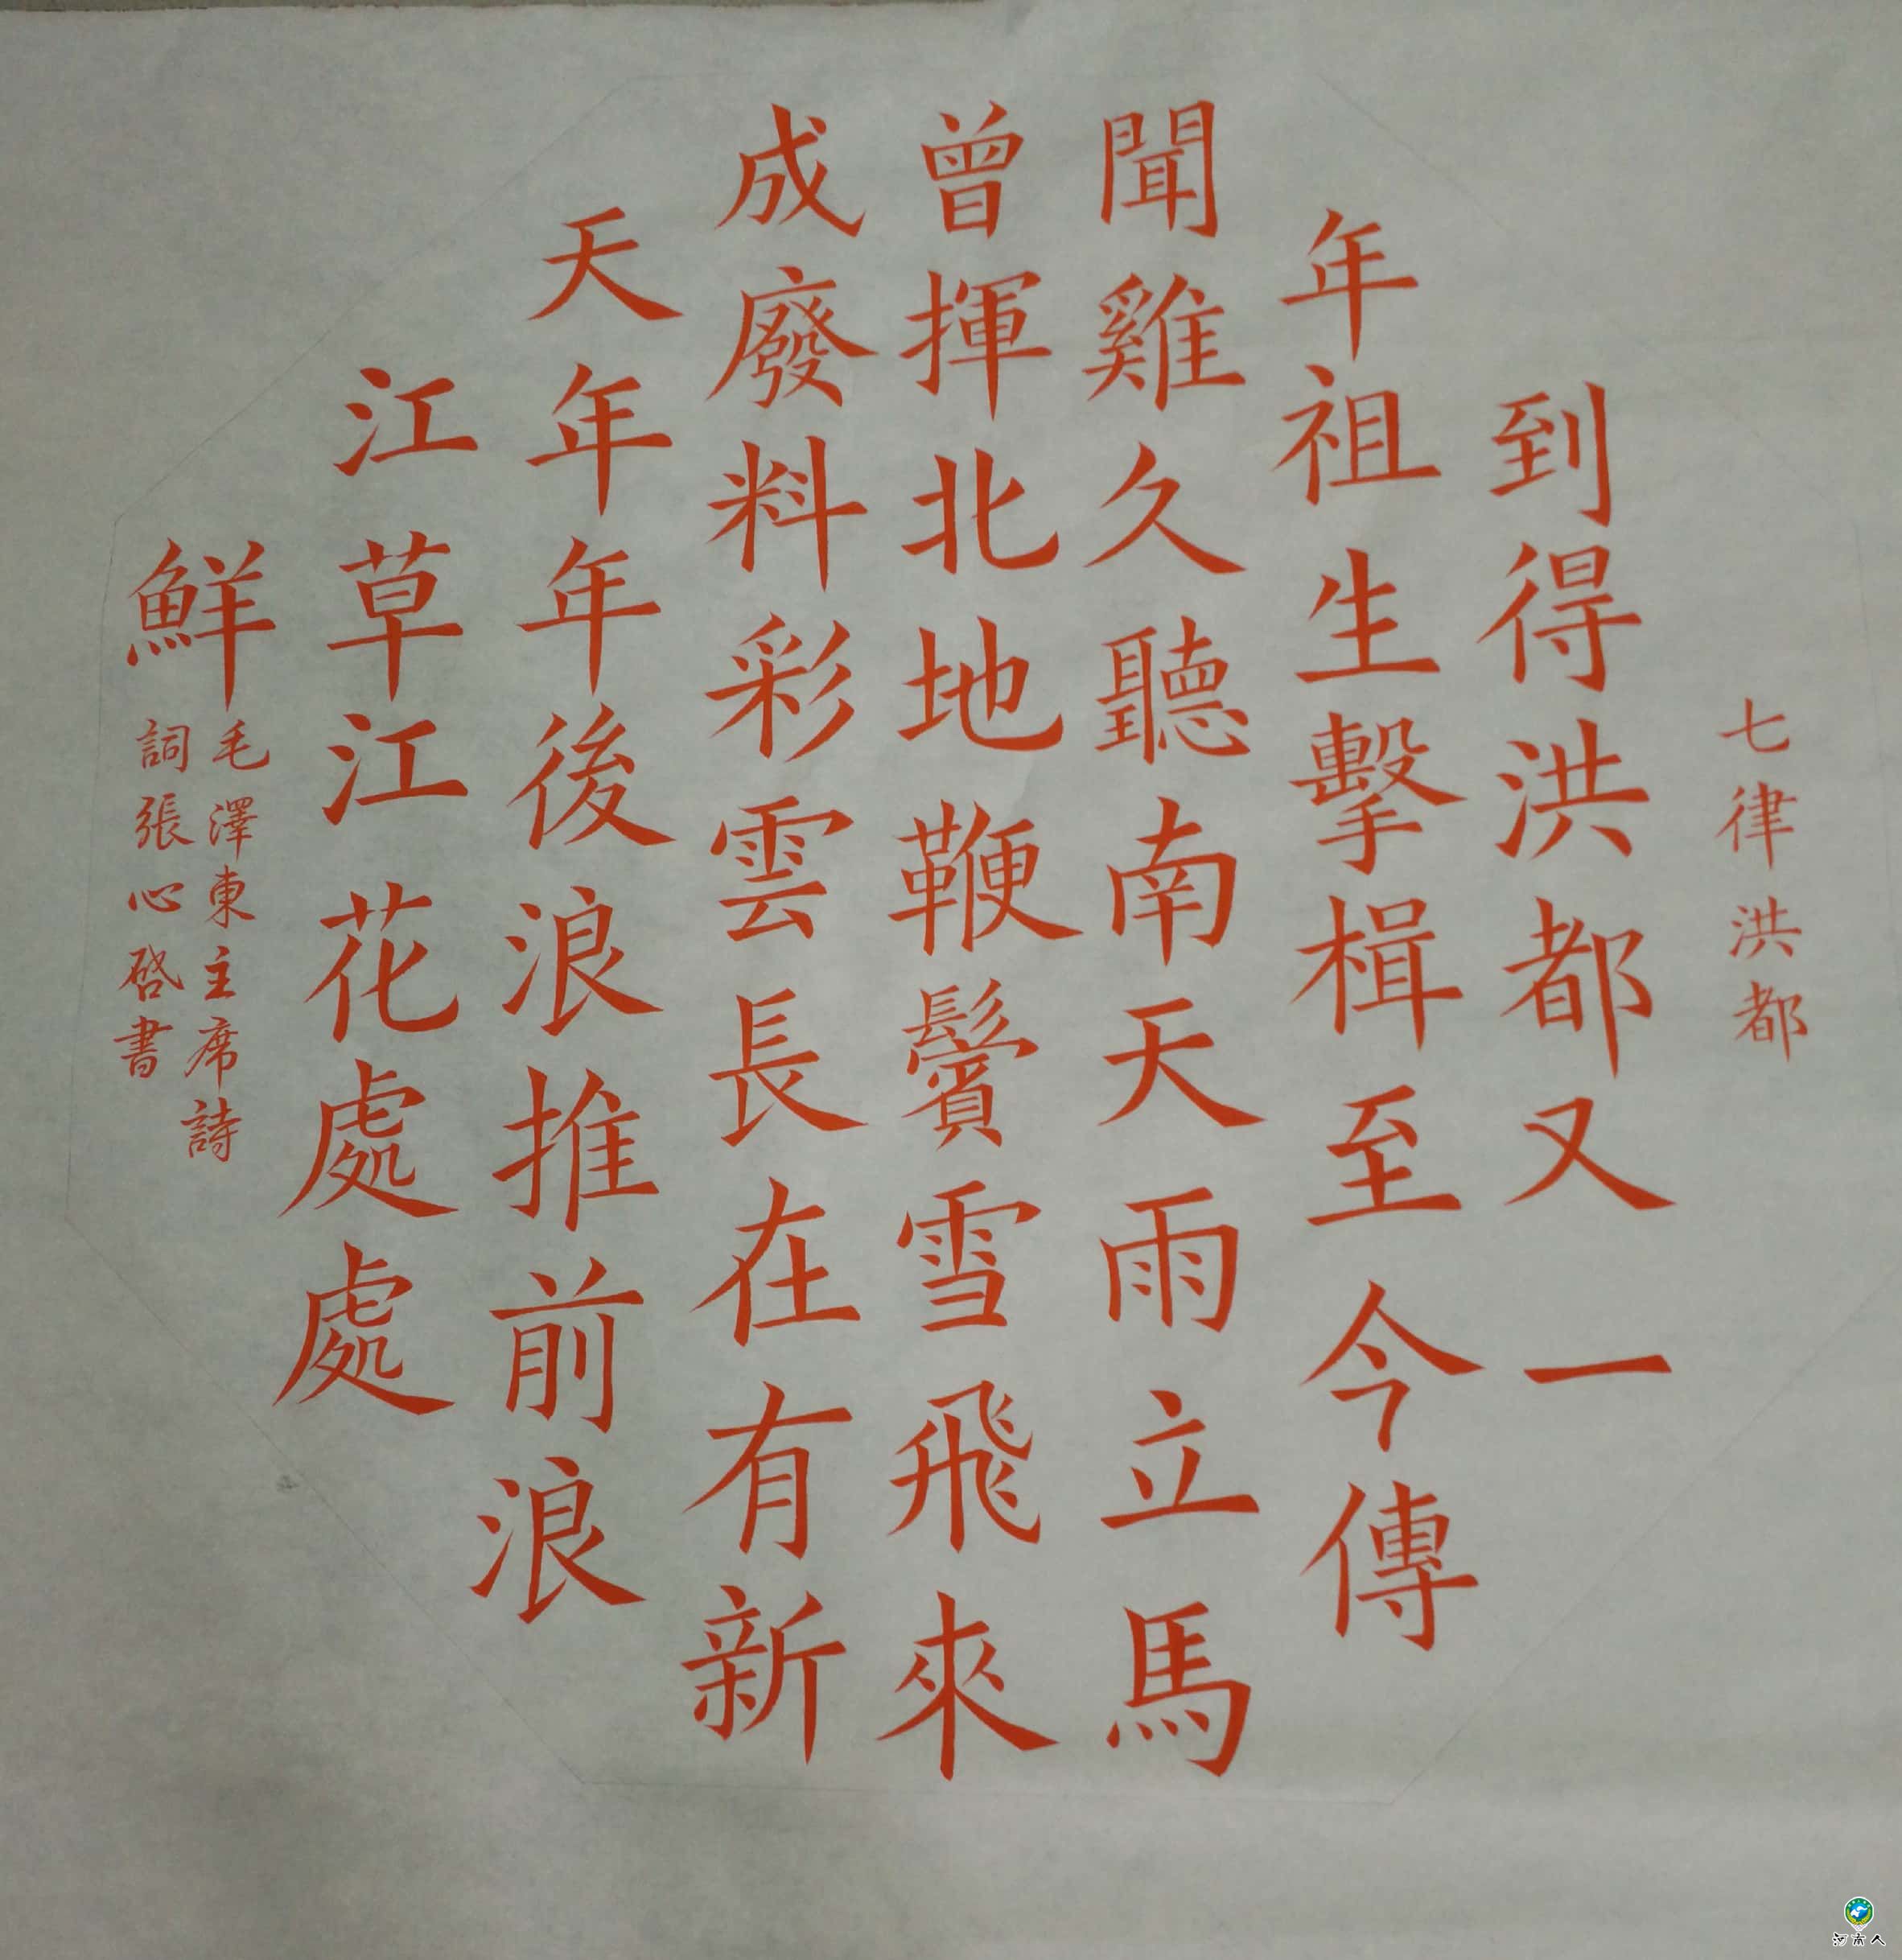 七律洪都
到得洪都又一
年祖生擊楫至今傳
聞雞久聽南天雨立馬
曾揮北地鞭鬢雪飛來
成廢料彩雲長在有新
天年年後浪推前浪
江草江花處處
鮮
毛澤東主席詩
詞張心啓書
河南人